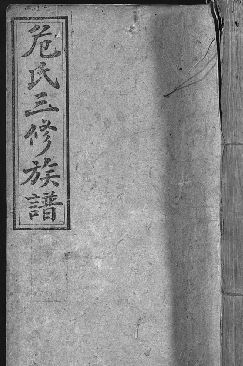 危氏三修族譜